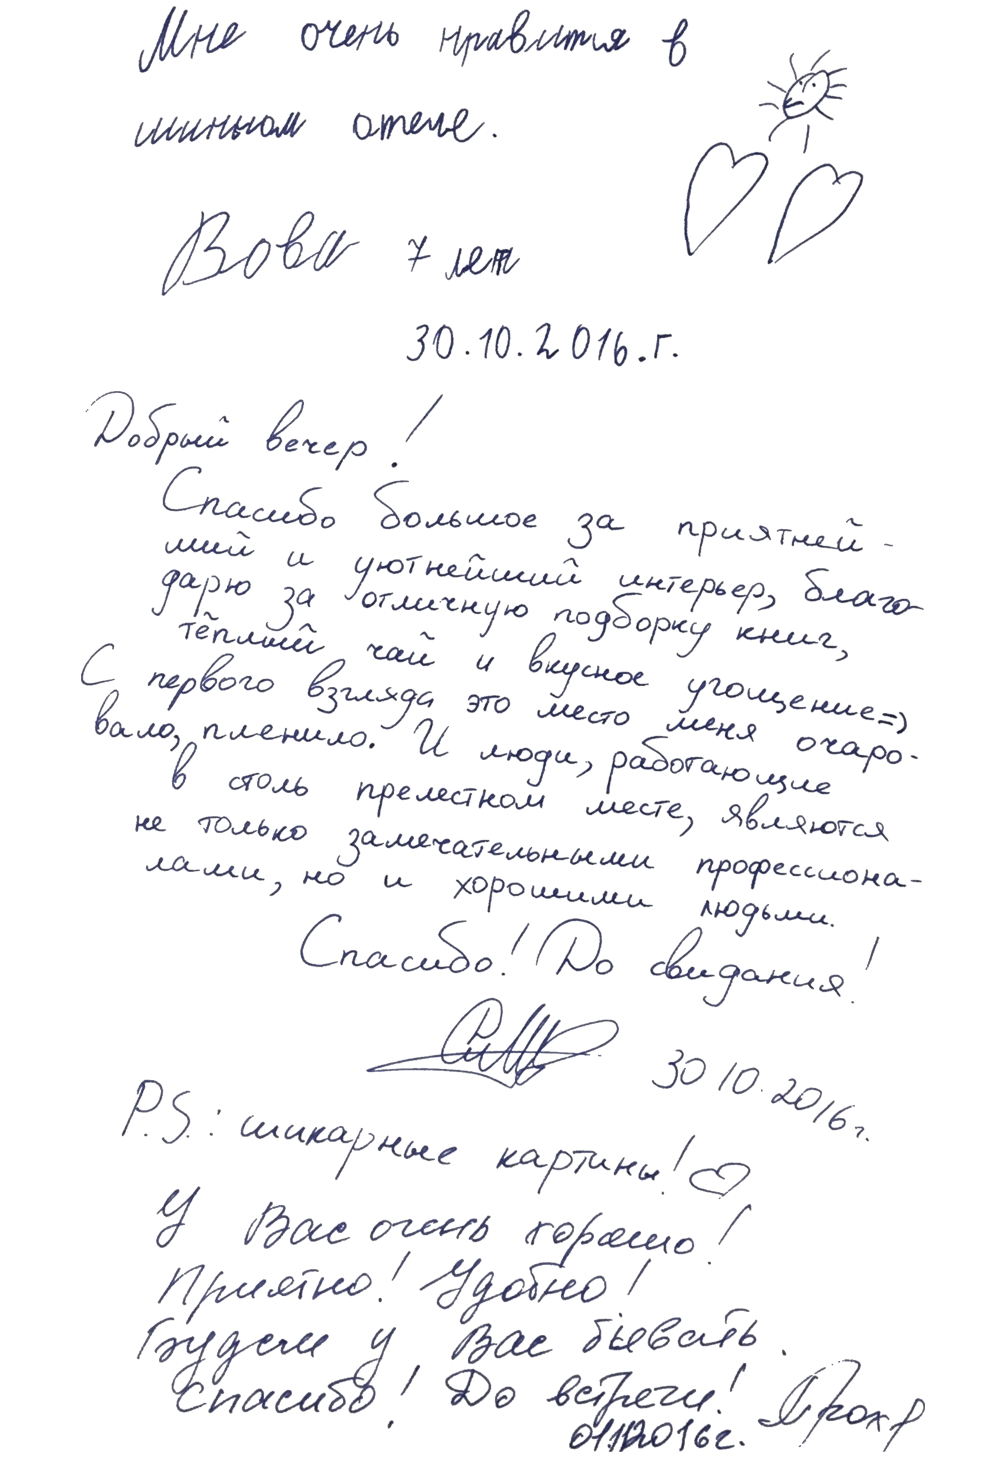 Мне очень нравится в
минном отеле.
Вова 7 лет
30.10.2016.г.
Добрый вечер!
Спасибо большое за приятней-
ший и уютнейший интерьер, благо-
дарю за отличную подборку книг,
тёплый чай и вкусное угощение=)
С первого взгляда это место меня очаро-
вало, пленило. И люди, работающие
в столь прелестном месте, являются
не только замечательными профессиона-
лами, но и хорошими людьми.
Спасибо! До свидания!
30 10.2016г.
P.S.: шикарные картины!
У Вас очень хорошо!
Приятно! Удобно!
Будем у Вас бывать.
Спасибо! До встречи!
01.11.2016г.